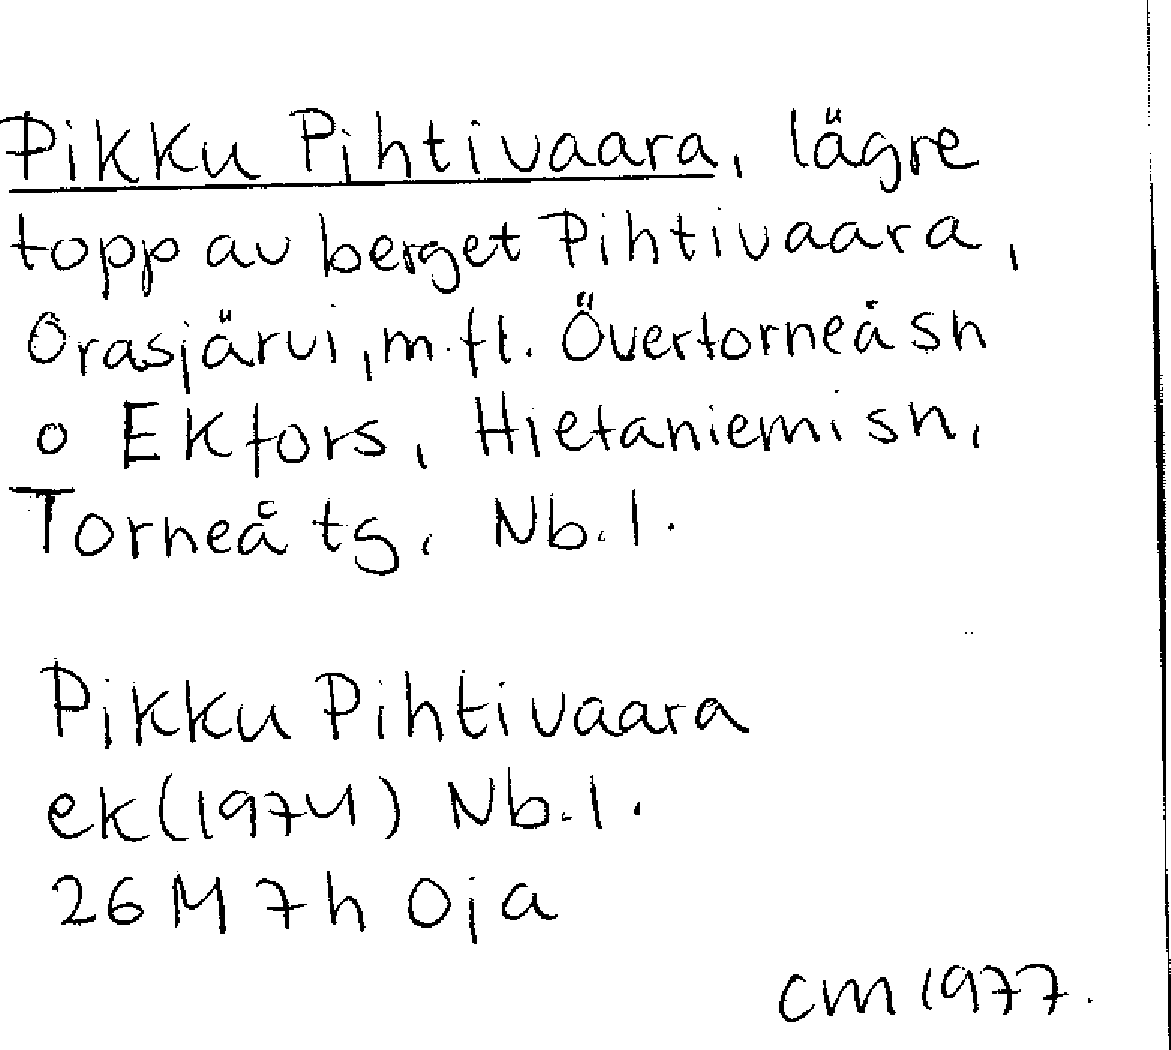 Pikku Pihtivaara, lägre
topp av berget Pihtivaara,
Orasjärvi, m.fl. Övertorneå sn
o Ekfors, Hietaniemi sn,
Torneå tg, Nb.l.
Pikku Pihtivaara
ek(1974) Nb.l.
26 M 7h Oja
CM 1977.